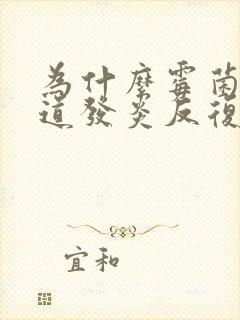 為什麼霉菌
道發炎反復
宜和